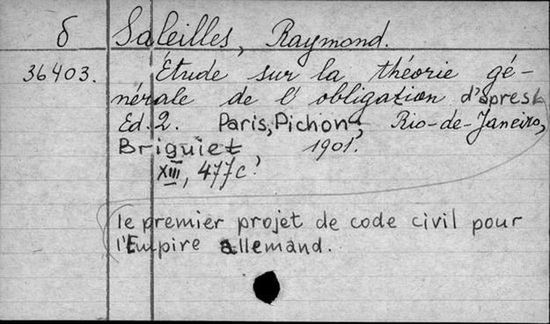 δ Saleilles, Raymond.
36403. Étude sur la théorie gé-
nérale de l'obligation d'après
Ed. 2. Paris, Pichon, Rio-de-Janeiro,
Briguiet 1901.
XIII, 477 c.
le premier projet de code civil pour
l'Empire allemand.